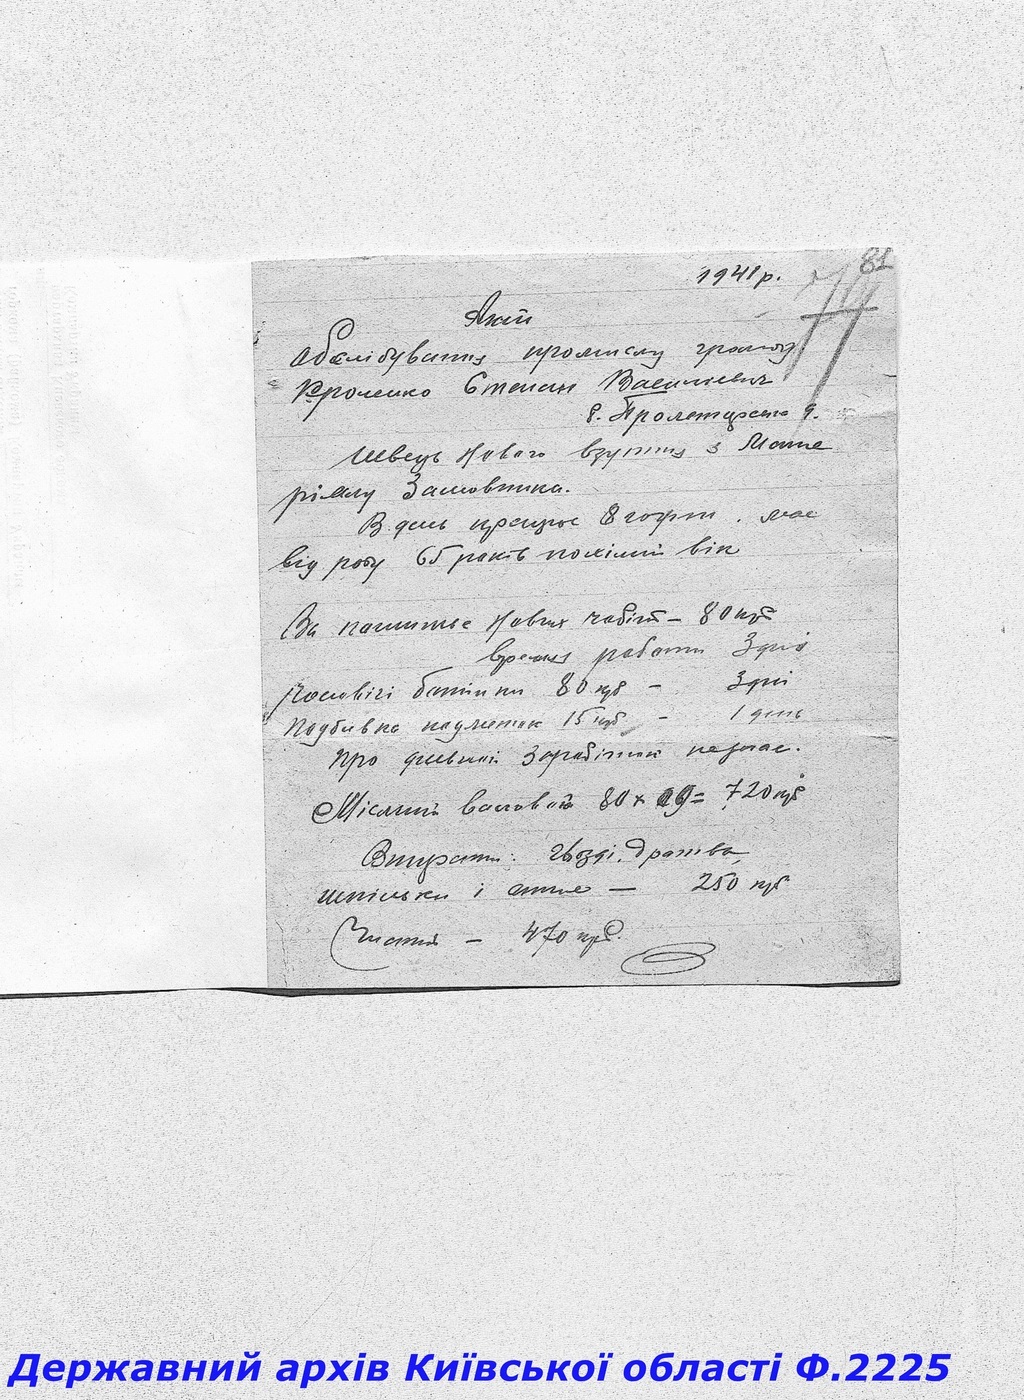 81
1941 р.
77
Акт
Обслідування промислу громод.
Кроленко Степан Василиевич
в. Пролетарська 9.
Швець нового взуття з Мате
ріалу Замовника.
В день працює 8 годин. має
від роду 65 років похілий вік
За пошитьє Нових чобіт – 80 руб
время работи 3 дні
Чоловічі батінки 80 руб – 3 дні
Подбивка подметок 15 руб – 1 день
Про дневной Заработок незнає.
Місячний валовой 80 × 9 = 720 руб
Витрати: гвозді, дратва,
шпільки і – 250 руб
Чистий – 470 руб.
Державний архів Київської області Ф.2225